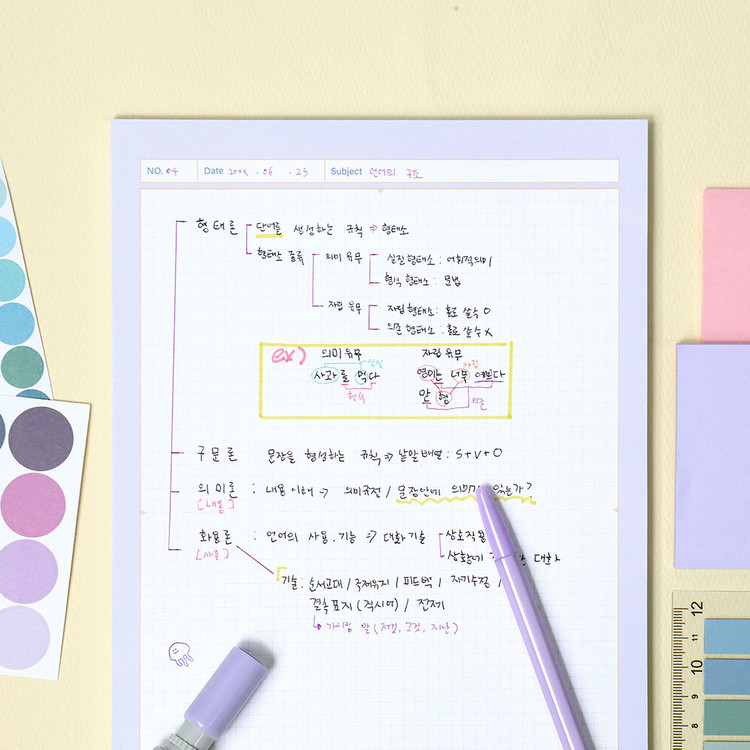 NO. 04 Date 20xx . 06 . 25 Subject 언어의 구조
형태론 단어를 생성하는 규칙 => 형태소
형태소 종류 의미 유무 실질 형태소 : 어휘적의미
형식 형태소 : 문법
자립 유무 자립 형태소 : 홀로 살수 O
의존 형태소 : 홀로 살수 X
ex) 의미유무 자립 유무
실질 자립
사과를 먹다 영미는 너무 예쁘다
형식 맏형 의존
구문론 문장을 형성하는 규칙 => 낱말배열 : S+V+O
의미론 : 내용 이해 -> 의미규전 / 문장안에 의미가 있는가?
[내용]
화용론 : 언어의 사용, 기능 => 대화기술 상호작용
[사용] 상황에 대화
기술 : 순서교대 / 주제유지 / 피드백 / 자기수정 /
결속표지 (직시어) / 전제
가리킴 말 (저것, 그것, 지난)
12
11
10
9
8